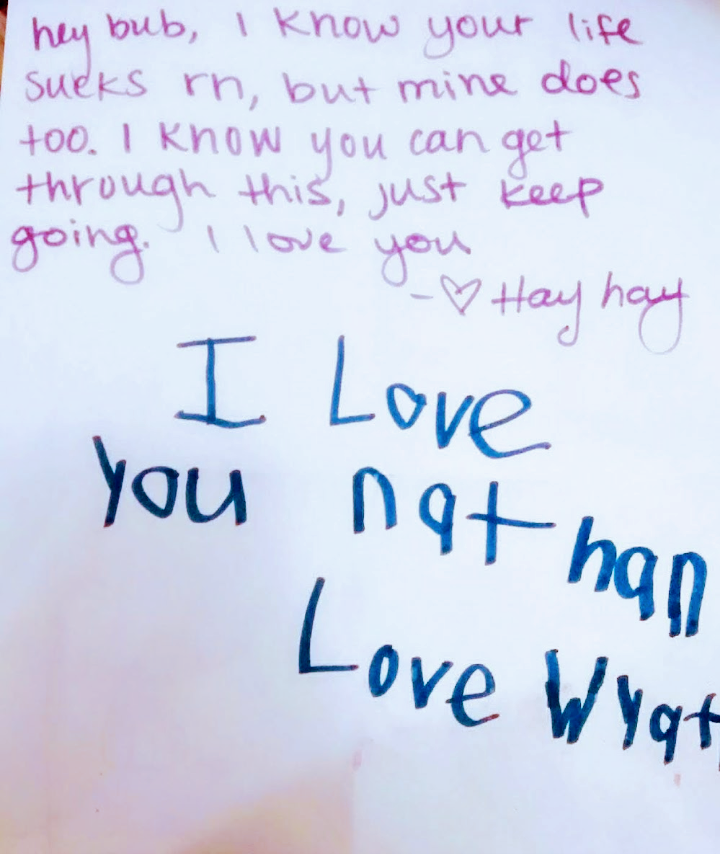 hey bub, I know your life
sucks rn, but mine does
too. I know you can get
through this, just keep
going. I love you
-♡ Hay hay
I Love
you nathan
Love Wyat